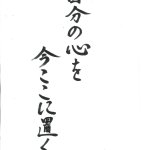 自分の心を
今ここに置く